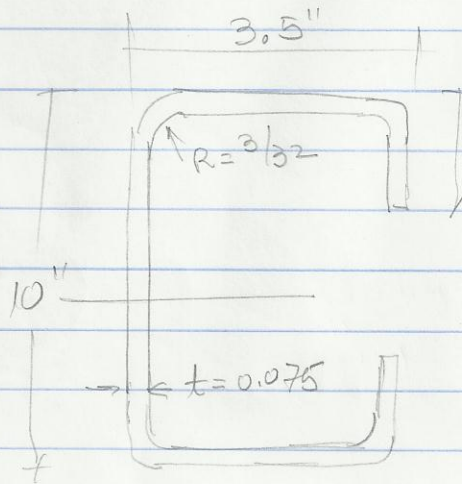 3.5"
R = 3/32
10"
t = 0.075